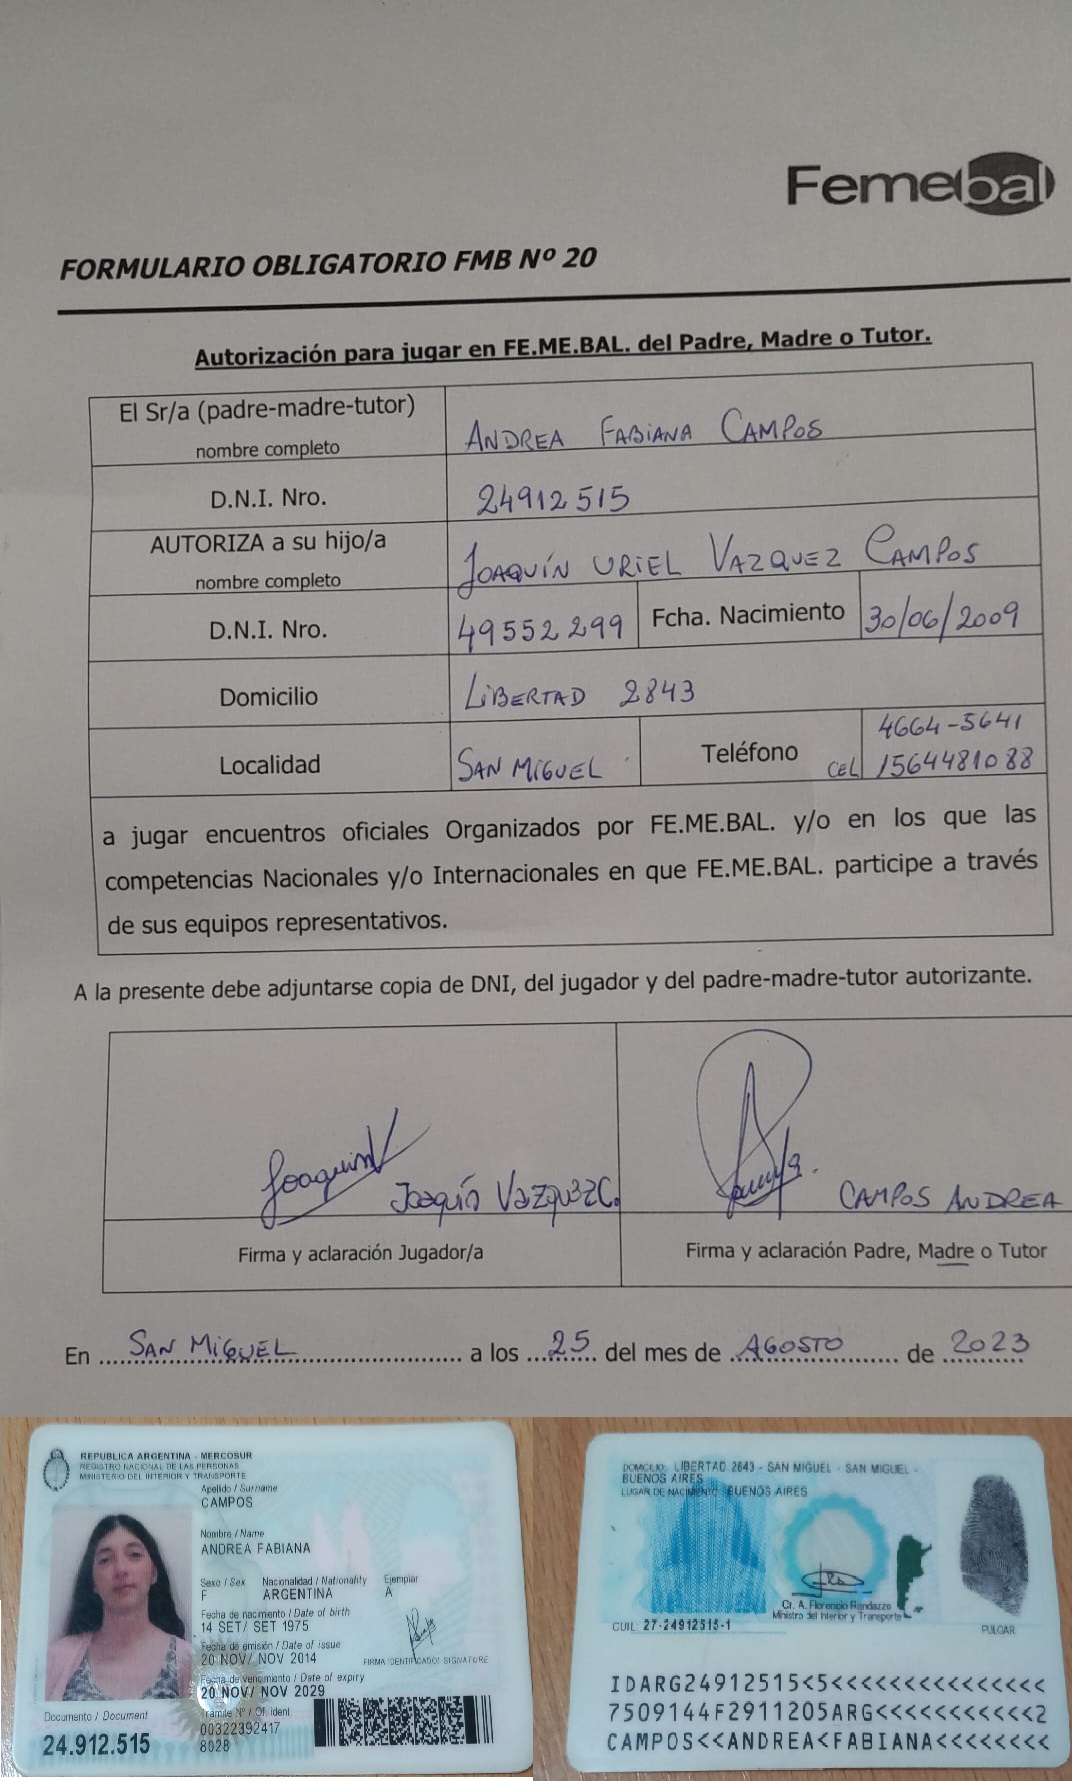 Femebal
FORMULARIO OBLIGATORIO FMB Nº 20
Autorización para jugar en FE.ME.BAL. del Padre, Madre o Tutor.
El Sr/a (padre-madre-tutor)
nombre completo
ANDREA FABIANA CAMPOS
D.N.I. Nro.
24912515
AUTORIZA a su hijo/a
nombre completo
JOAQUÍN URIEL VAZQUEZ CAMPOS
D.N.I. Nro.
49552299
Fcha. Nacimiento
30/06/2009
Domicilio
LIBERTAD 2843
Localidad
SAN MIGUEL
Teléfono
4664-5641
CEL 1564481088
a jugar encuentros oficiales Organizados por FE.ME.BAL. y/o en los que las
competencias Nacionales y/o Internacionales en que FE.ME.BAL. participe a través
de sus equipos representativos.
A la presente debe adjuntarse copia de DNI, del jugador y del padre-madre-tutor autorizante.
Joaquín V
Joaquín Vazquez C.
CAMPOS ANDREA
Firma y aclaración Jugador/a
Firma y aclaración Padre, Madre o Tutor
En SAN MIGUEL a los 25 del mes de AGOSTO de 2023
REPUBLICA ARGENTINA - MERCOSUR
REGISTRO NACIONAL DE LAS PERSONAS
MINISTERIO DEL INTERIOR Y TRANSPORTE
Apellido / Surname
CAMPOS
Nombre / Name
ANDREA FABIANA
Sexo / Sex Nacionalidad / Nationality Ejemplar
F ARGENTINA A
Fecha de nacimiento / Date of birth
14 SET/ SET 1975
Fecha de emisión / Date of issue
20 NOV/ NOV 2014
FIRMA IDENTIFICADO/ SIGNATURE
Fecha de vencimiento / Date of expiry
20 NOV/ NOV 2029
Trámite Nº / Of. ident.
00322392417
8028
Documento / Document
24.912.515
DOMICILIO: LIBERTAD 2843 - SAN MIGUEL - SAN MIGUEL -
BUENOS AIRES
LUGAR DE NACIMIENTO: BUENOS AIRES
Cr. A. Florencio Randazzo
Ministro del Interior y Transporte
CUIL: 27-24912515-1
PULGAR
IDARG24912515<5<<<<<<<<<<<<<<<
7509144F2911205ARG<<<<<<<<<<<2
CAMPOS<<ANDREA<FABIANA<<<<<<<<